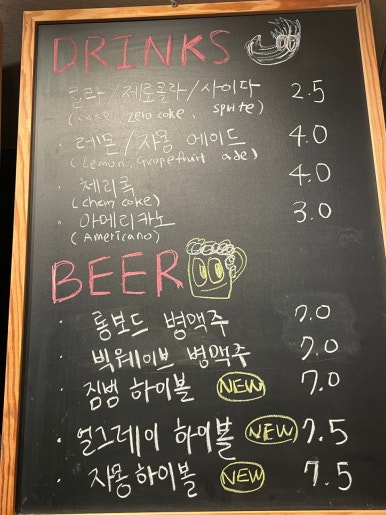 DRINKS
콜라/제로콜라/사이다 2.5
(coke, zero coke, sprite)
· 레몬/자몽 에이드 4.0
(Lemon, Grapefruit ade)
· 체리콕 4.0
(Cherry coke)
· 아메리카노 3.0
(Americano)
BEER
· 롱보드 병맥주 7.0
· 빅웨이브 병맥주 7.0
· 짐빔 하이볼 NEW 7.0
· 얼그레이 하이볼 NEW 7.5
· 자몽하이볼 NEW 7.5